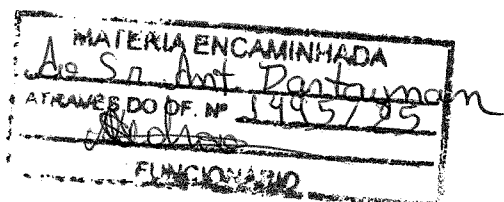 MATERIA ENCAMINHADA
Ao Sr. Ant
ATRAVES DO OF. Nº 1495/95
FUNCIONARIO